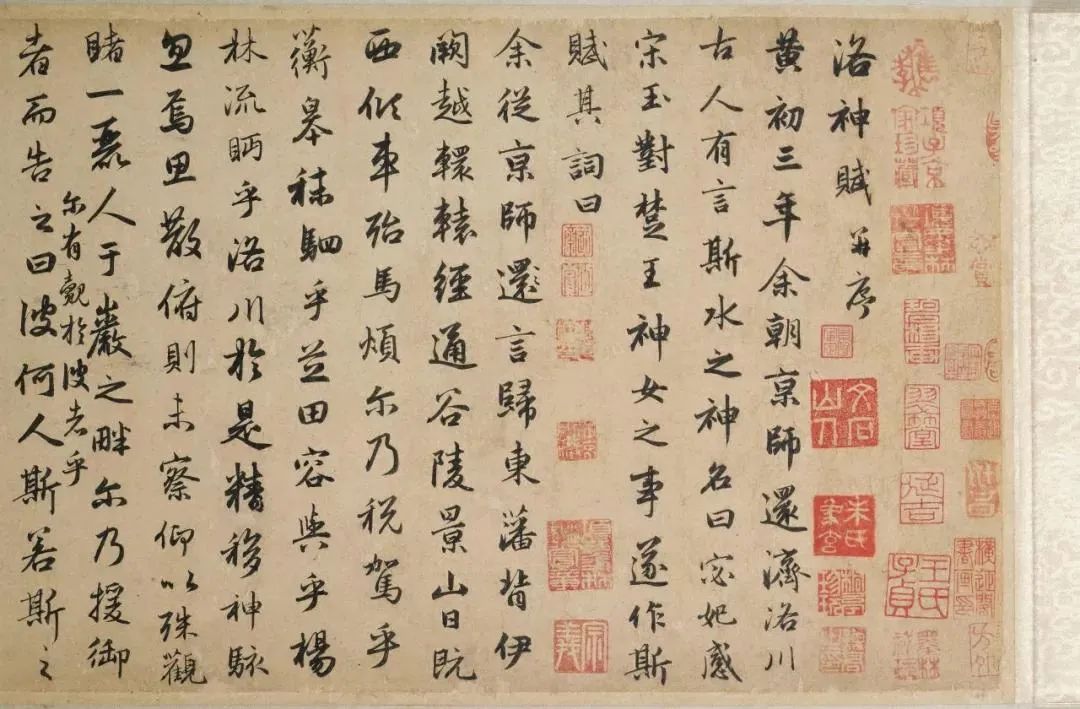 項子京家珍藏
朱氏象玄
洛神賦并序
黃初三年余朝京師還濟洛川
古人有言斯水之神名曰宓妃感
宋玉對楚王神女之事遂作斯
賦其詞曰
余從京師還言歸東藩背伊
闕越轘轅經通谷陵景山日既
西傾車殆馬煩尔乃税駕乎
蘅皋秣駟乎芝田容與乎楊
林流眄乎洛川於是精移神駭
忽焉思散俯則未察仰以殊觀
睹一麗人于巖之畔尔乃援御
尔有覿於彼者乎
者而告之曰彼何人斯若斯之